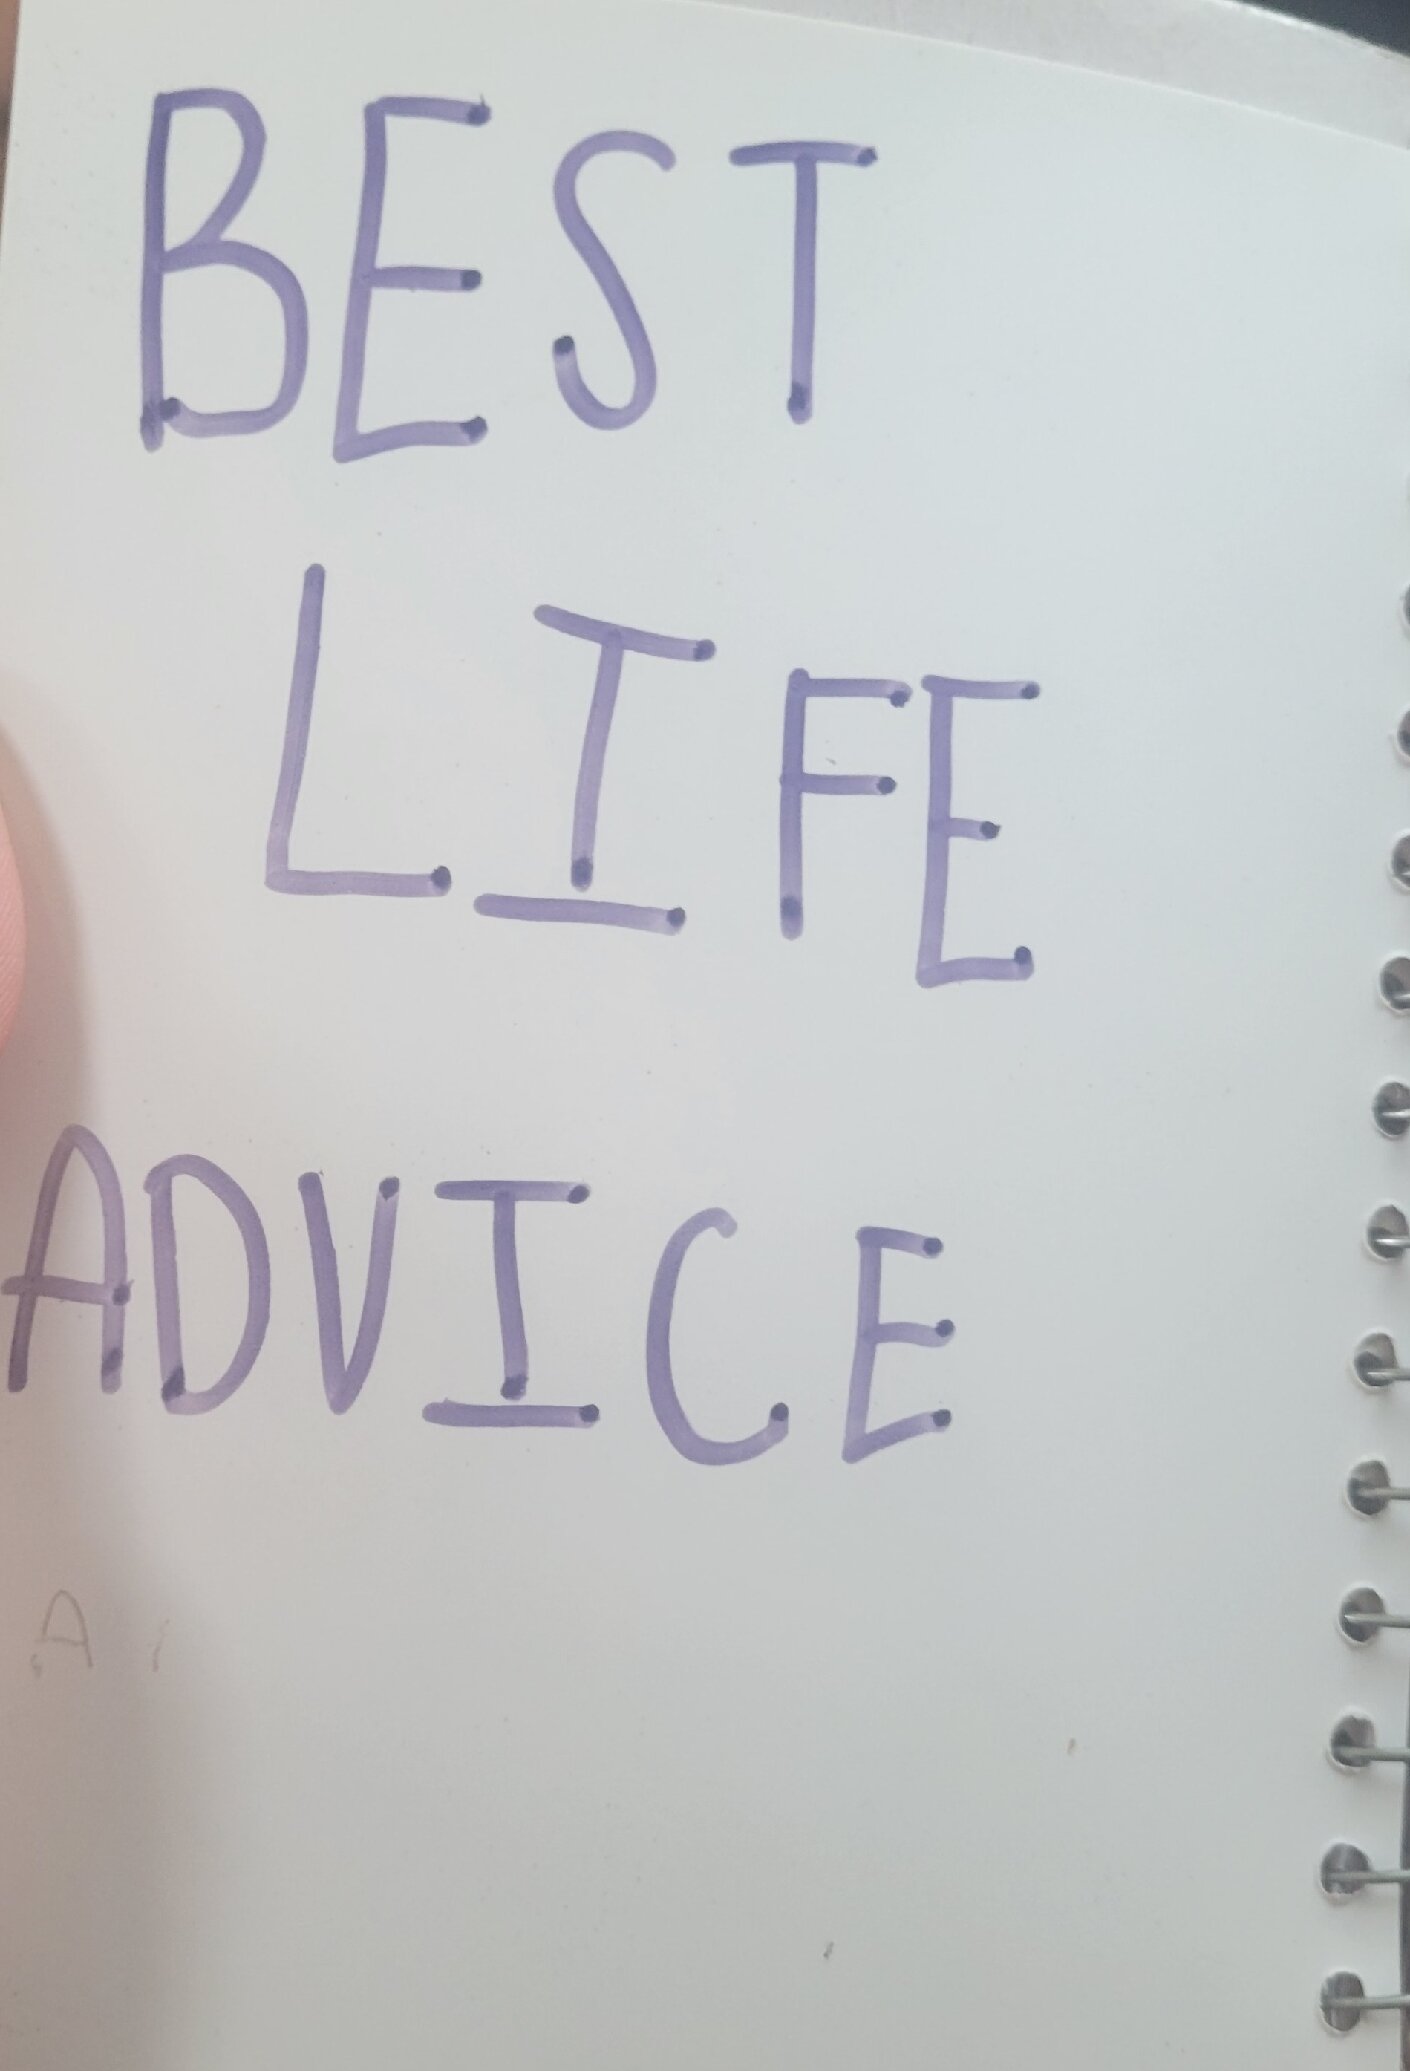 BEST
LIFE
ADVICE